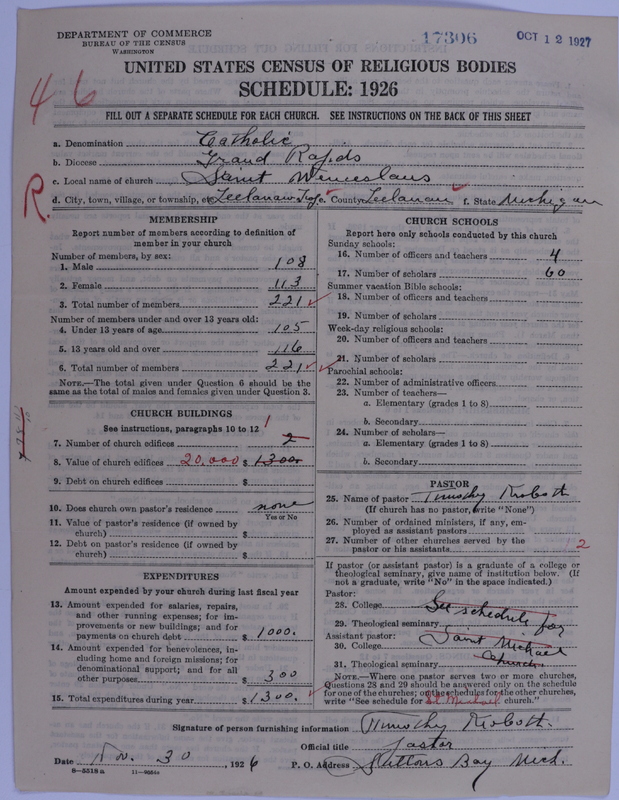 DEPARTMENT OF COMMERCE
BUREAU OF THE CENSUS
WASHINGTON
17306
OCT 12 1927
UNITED STATES CENSUS OF RELIGIOUS BODIES
SCHEDULE: 1926
46
FILL OUT A SEPARATE SCHEDULE FOR EACH CHURCH. SEE INSTRUCTIONS ON THE BACK OF THIS SHEET
a. Denomination Catholic
b. Diocese Grand Rapids
c. Local name of church Saint Wenceslaus
R.
d. City, town, village, or township, etc Leelanaw Twp e. County Leelanau f. State Michigan
MEMBERSHIP
Report number of members according to definition of
member in your church
Number of members, by sex:
1. Male 108
2. Female 113
3. Total number of members 221
Number of members under and over 13 years old:
4. Under 13 years of age 105
5. 13 years old and over 116
6. Total number of members 221
NOTE.—The total given under Question 6 should be the
same as the total of males and females given under Question 3.
CHURCH BUILDINGS
See instructions, paragraphs 10 to 12
7. Number of church edifices 2 1
8. Value of church edifices 20,000 $ 1300.
9. Debt on church edifices $
10. Does church own pastor's residence none
Yes or No
11. Value of pastor's residence (if owned by
church) $
12. Debt on pastor's residence (if owned by
church) $
EXPENDITURES
Amount expended by your church during last fiscal year
13. Amount expended for salaries, repairs,
and other running expenses; for im-
provements or new buildings; and for
payments on church debt $ 1000.
14. Amount expended for benevolences, in-
cluding home and foreign missions; for
denominational support; and for all
other purposes $ 300
15. Total expenditures during year $ 1300.
CHURCH SCHOOLS
Report here only schools conducted by this church
Sunday schools:
16. Number of officers and teachers 4
17. Number of scholars 60
Summer vacation Bible schools:
18. Number of officers and teachers
19. Number of scholars
Week-day religious schools:
20. Number of officers and teachers
21. Number of scholars
Parochial schools:
22. Number of administrative officers
23. Number of teachers—
a. Elementary (grades 1 to 8)
b. Secondary
24. Number of scholars—
a. Elementary (grades 1 to 8)
b. Secondary
PASTOR
25. Name of pastor Timothy Kroboth
(If church has no pastor, write "None")
26. Number of ordained ministers, if any, em-
ployed as assistant pastors
27. Number of other churches served by the
pastor or his assistants 2
If pastor (or assistant pastor) is a graduate of a college or
theological seminary, give name of institution below. (If
not a graduate, write "No" in the space indicated.)
Pastor:
28. College See schedule for
29. Theological seminary
Assistant pastor: Saint Michael
30. College
31. Theological seminary Church
NOTE.—Where one pastor serves two or more churches,
Questions 28 and 29 should be answered only on the schedule
for one of the churches; on the schedules for the other churches,
write "See schedule for St. Michael church."
Signature of person furnishing information Timothy Kroboth
Official title Pastor
Date Nov. 30, 1926 P. O. Address Suttons Bay Mich.
8—5518 a 11—9666